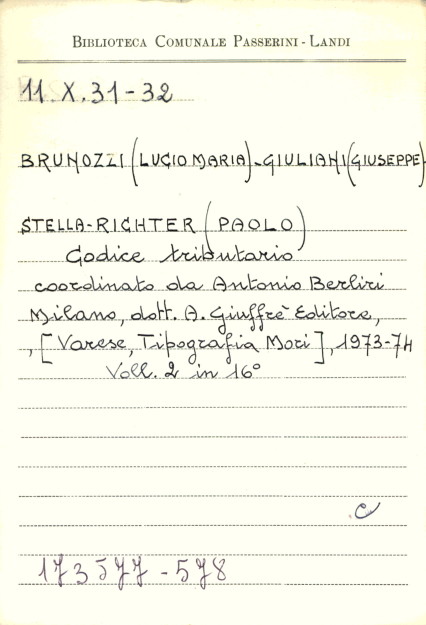 BIBLIOTECA COMUNALE PASSERINI - LANDI
11. X. 31 - 32
BRUNOZZI (LUCIO MARIA) - GIULIANI (GIUSEPPE)
STELLA-RICHTER (PAOLO)
Codice tributario
coordinato da Antonio Berliri
Milano, dott. A. Giuffrè Editore,
, [Varese, Tipografia Mori], 1973-74
Voll. 2 in 16°
C
173577 - 578